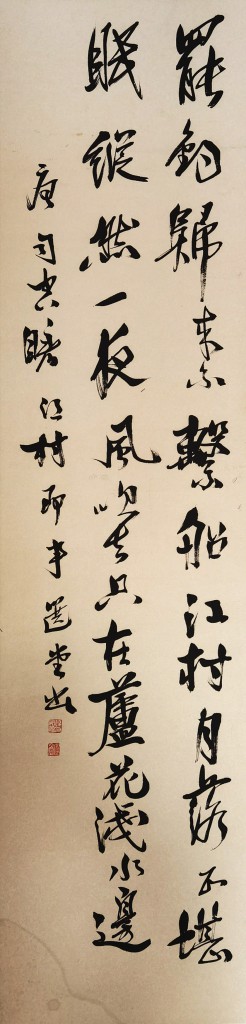 罷釣歸來不繫船江村月落正堪
眠縱然一夜風吹去只在蘆花淺水邊
唐司空曙江村即事選堂書